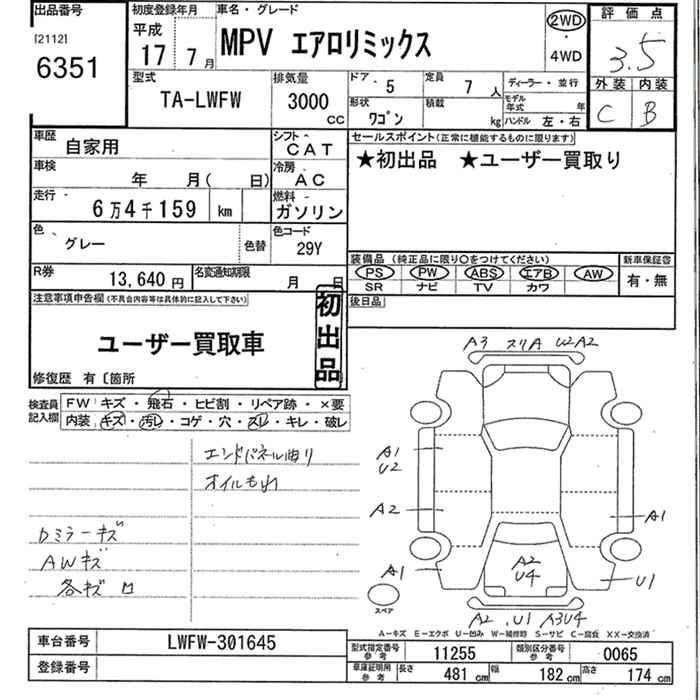 出品番号
[2112]
6351
初度登録年月
平成
17 7月
車名・グレード
MPV エアロリミックス
2WD
・
4WD
評価点
3.5
外装 内装
C B
型式
TA-LWFW
排気量
3000
cc
ドア 5
定員 7人
形状 ワゴン
積載 kg
ディーラー・並行
モデル年式 年
ハンドル 左・右
車歴
自家用
シフト
CAT
車検
年 月( 日)
冷房
AC
走行
6万4千159 km
燃料
ガソリン
色
グレー
色替
色コード
29Y
R券
13,640円
名変通知期限
月 日
セールスポイント(正常に機能するものに限ります)
★初出品 ★ユーザー買取り
装備品(純正品に限り○をつけてください)
PS PW ABS エアB AW
SR ナビ TV カワ
新車保証書
有・無
後日品
注意事項申告欄(不具合内容等は具体的に記入して下さい)
初出品
ユーザー買取車
修復歴 有〔箇所
検査員記入欄
FW:キズ・飛石・ヒビ割・リペア跡・×要
内装:キズ・汚レ・コゲ・穴・スレ・キレ・破レ
エンドパネル曲り
オイルもれ
Dミラーキズ
AWキズ
各キズ ロ
A3 スリA U2A2
A1
U2
A2
A1
A1
A2
U4
U1
スペア
A2 . U1 A3U4
A-キズ E-エクボ U-凹み W-補修時 S-サビ C-腐食 XX-交換済
車台番号
LWFW-301645
登録番号
型式指定番号 参考 11255
類別区分番号 参考 0065
車庫証明用 参考 長さ 481cm 幅 182cm 高さ 174cm